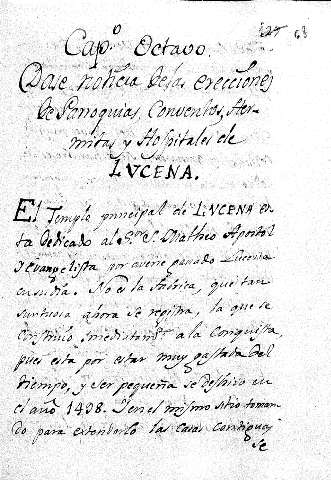 68
Capº Octavo.
Dase noticia de las erecciones
de Parroquias, Conventos, Her-
mitas y Hospitales de
LVCENA.
El Templo principal de LUCENA es-
ta dedicado al Sor S. Matheo Apostol
y Evangelista por averse ganado Lucena
en su dia. No es la fabrica, que tan
suntuosa ahora se registra, la que se
construio immediatamte a la Conquista
pues esta por estar muy gastada del
tiempo, y ser pequeña se deshizo en
el año 1498. Y en el mismo sitio toman-
do para extenderlo las casas contiguas
se